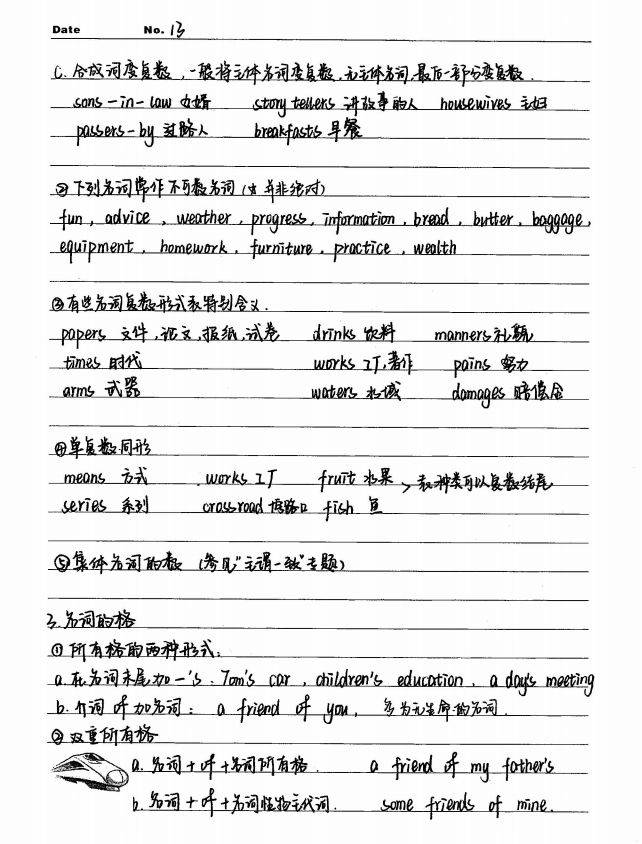 Date No. 13
c. 合成词变复数，一般将主体名词变复数，无主体名词，最后一部分变复数．
sons-in-law 女婿 story tellers 讲故事的人 housewives 主妇
passers-by 过路人 breakfasts 早餐
②下列名词常作不可数名词（但并非绝对）
fun, advice, weather, progress, information, bread, butter, baggage,
equipment, homework, furniture, practice, wealth
③有些名词复数形式表特别含义．
papers 文件，论文，报纸，试卷 drinks 饮料 manners 礼貌
times 时代 works 工厂，著作 pains 努力
arms 武器 waters 水域 damages 赔偿金
④单复数同形
means 方式 works 工厂 fruit 水果 > 表种类可以复数结尾
series 系列 crossroad 十字路口 fish 鱼
⑤集体名词的数（参见"主谓一致"专题）
3. 名词的格
①所有格的两种形式：
a. 在名词末尾加 -'s: Tom's car, children's education, a day's meeting
b. 介词 of 加名词: a friend of you, 多为无生命的名词．
②双重所有格
a. 名词 + of + 名词所有格． a friend of my father's
b. 名词 + of + 名词性物主代词． some friends of mine.